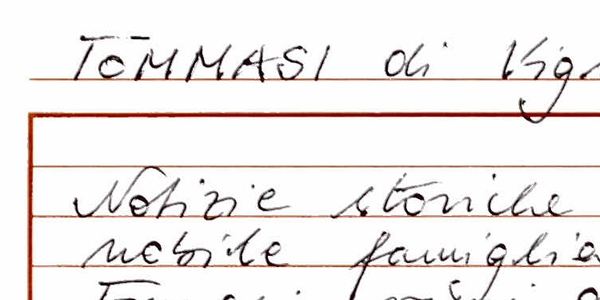 TOMMASI di
Notizie storiche
nobile famiglia